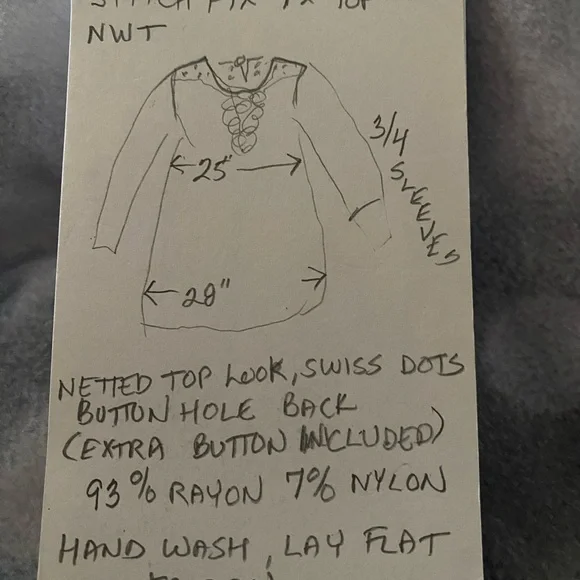 STITCH FIX 1X TOP
NWT
3/4 SLEEVES
25"
28"
NETTED TOP LOOK, SWISS DOTS
BUTTON HOLE BACK
(EXTRA BUTTON INCLUDED)
93% RAYON 7% NYLON
HAND WASH, LAY FLAT